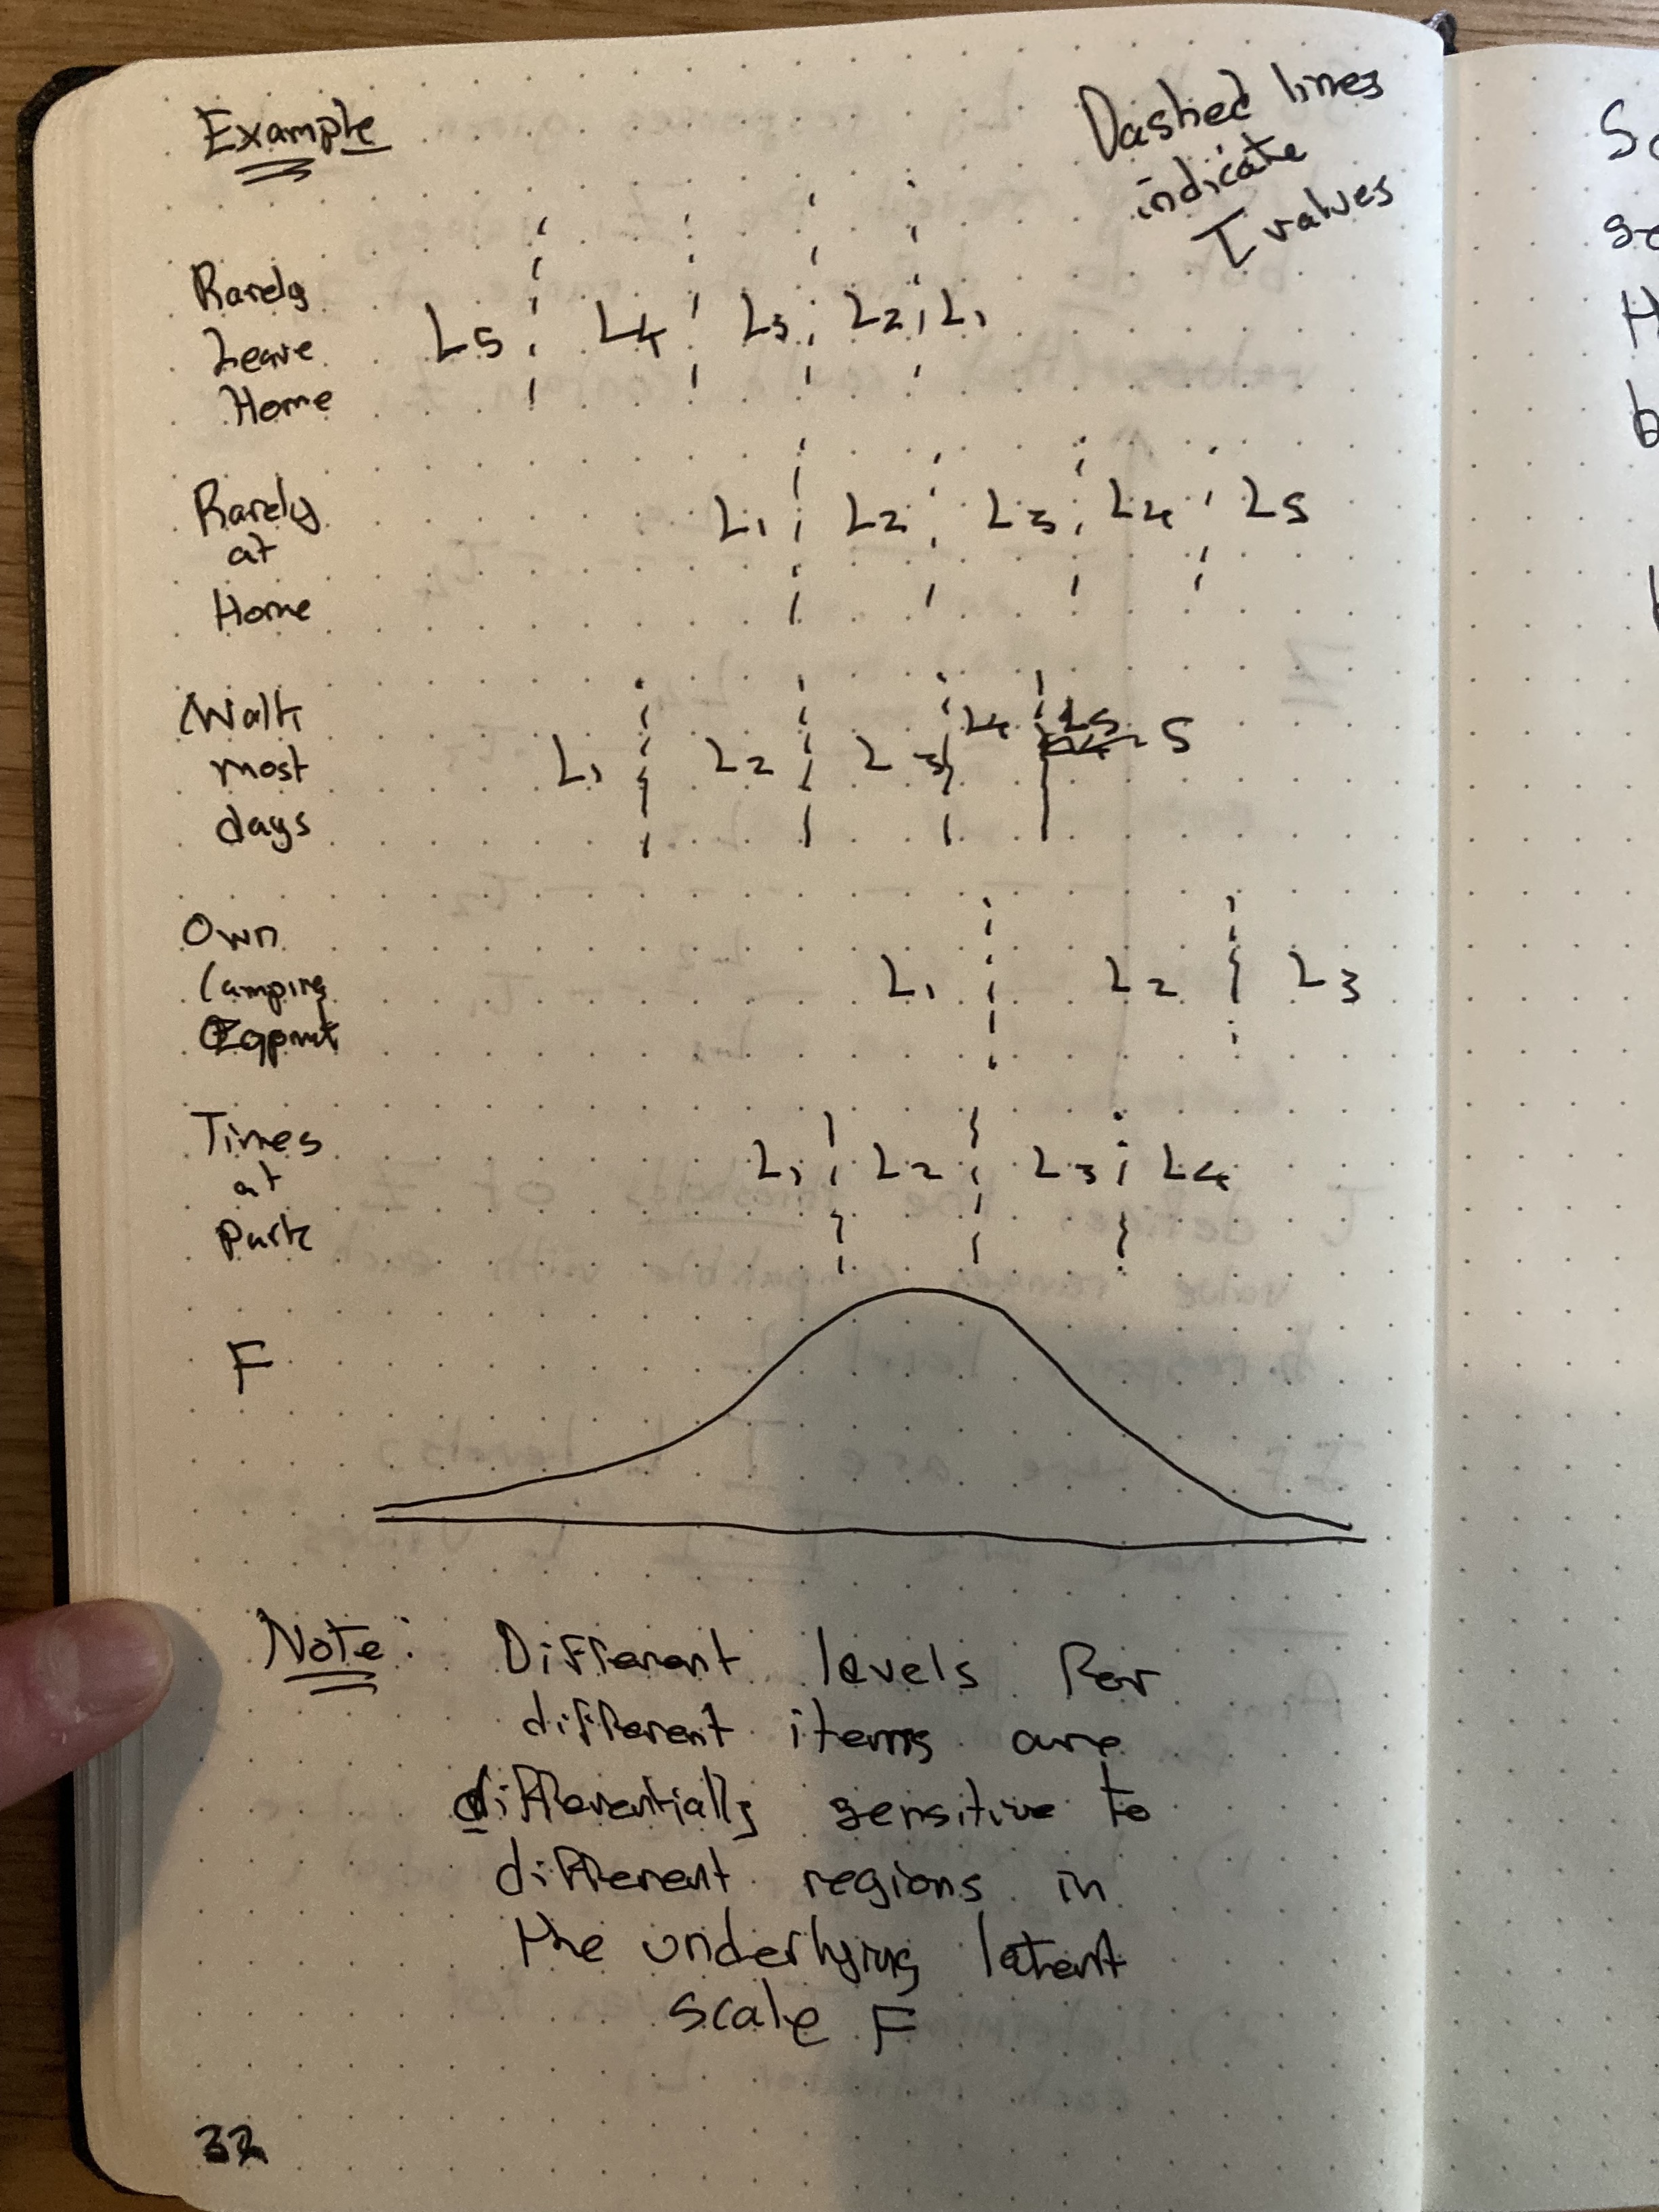 Example
Dashed lines
indicate
τ values
Rarely
Leave
Home
L5 L4 L3 L2 L1
Rarely
at
Home
L1 L2 L3 L4 L5
Walk
most
days
L1 L2 L3 L4 L5 5
Own
Camping
Eqpmnt
L1 L2 L3
Times
at
Park
L1 L2 L3 L4
F
Note: Different levels for
different items are
differentially sensitive to
different regions in
the underlying latent
scale F
32